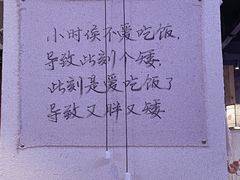 小时候不爱吃饭,
导致此刻个矮.
此刻是爱吃饭了
导致又胖又矮.